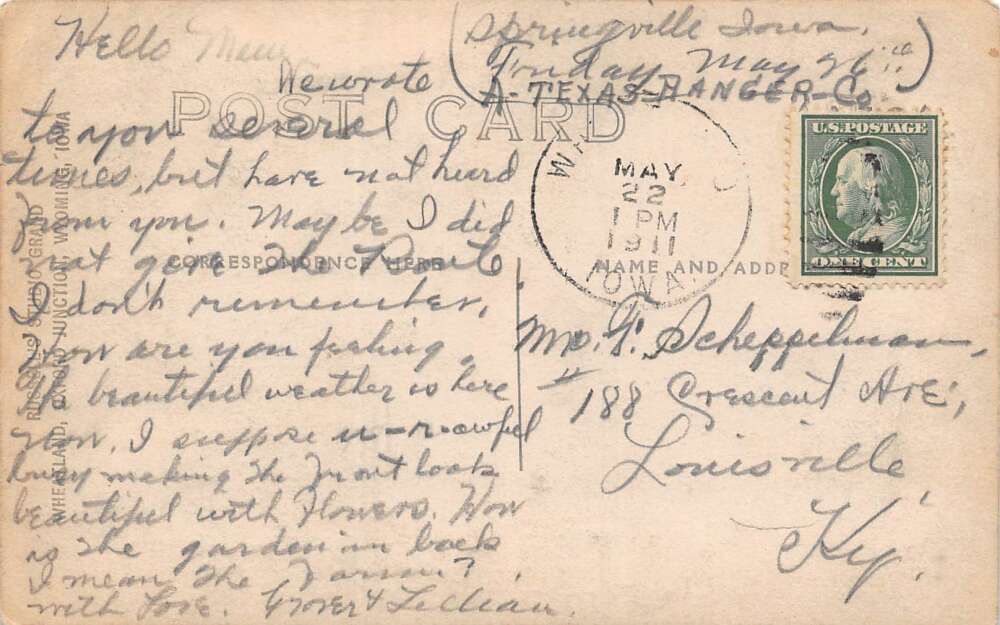 Hello
(Springville Iowa.
Friday May 26th)
A-TEXAS-RANGER-Co
We wrote
POST CARD
to you several
times, but have not heard
from you. Maybe I did
not give the Route
I don't remember,
How are you feeling.
The beautiful weather is here
now. I suppose u-r-awful
busy making the Front look
beautiful with Flowers. How
is the garden in back
I mean the Farm?
with Love. Grover & Lillian.
CORRESPONDENCE HERE
NAME AND ADDR
RUSSELL'S STUDIO GRAND
WHEATLAND, OXFORD JUNCTION, WYOMING, IOWA
MAY
22
1 PM
1911
IOWA.
U.S. POSTAGE
ONE CENT
Mrs. F. Scheppelman,
" 188 Crescent Ave,
Louisville
Ky.